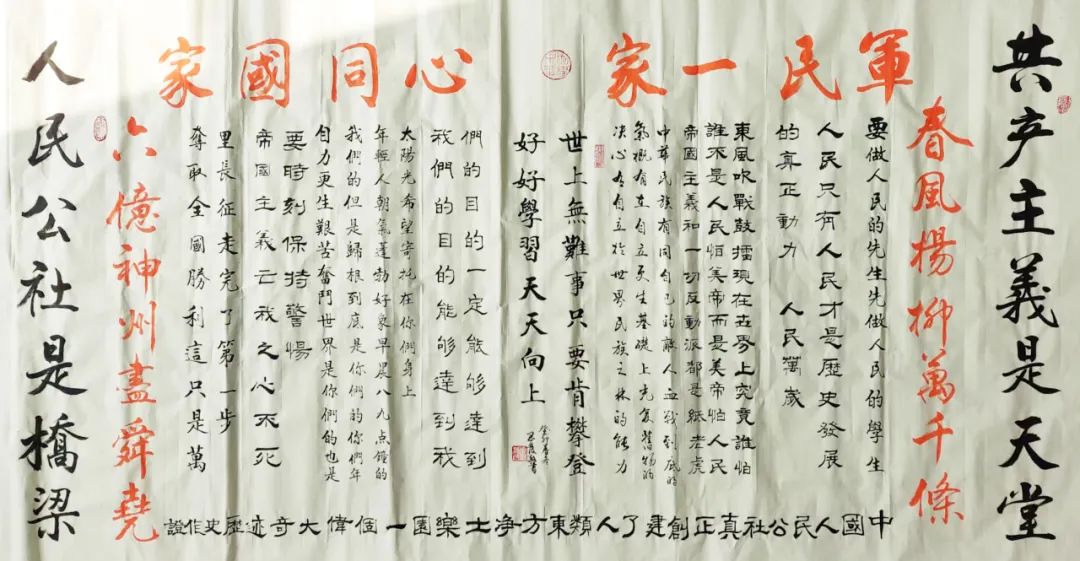 共产主義是天堂
春風楊柳萬千條
軍民一家
心同國家
要做人民的先生先做人民的學生
人民只有人民才是歷史發展
的真正動力 人民萬歲
東風吹戰鼓擂現在世界上究竟誰怕
誰不是人民怕美帝而是美帝怕人民
帝國主義和一切反動派都是紙老虎
中華民族有同自己的敵人血戰到底的
氣概有在自立更生基礎上光复舊物的
决心有自立於世界民族之林的能力
世上無難事只要肯攀登
好好學習天天向上
奪取全國勝利這只是萬
里長征走完了第一步
帝國主義亡我之心不死
要時刻保持警惕
自力更生艱苦奮鬥世界是你們的也是
我們的但是歸根到底是你們的你們年
年輕人朝氣蓬勃好象早晨八九点鐘的
太陽光希望寄托在你們身上
我們的目的能够達到我
們的目的一定能够達到
中國人民公社真正創建了人類東方净土樂園一個偉大奇迹歷史作證
六億神州盡舜堯
人民公社是橋梁